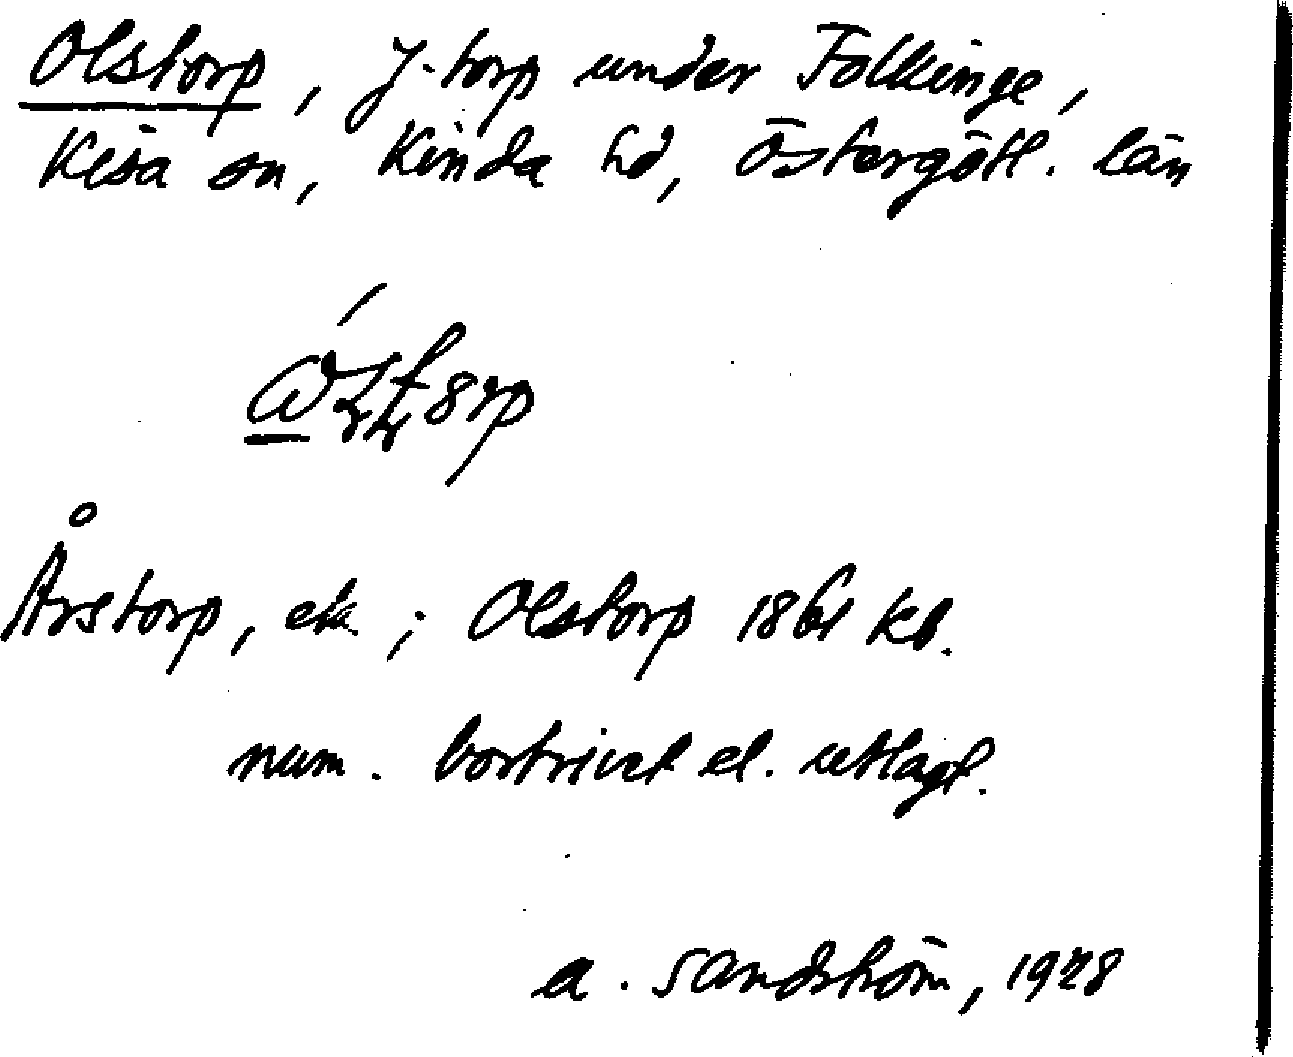 Olstorp, j-torp under Folkinge,
Kisa sn, Kinda hd, Östergötl. län
Årstorp, ek. ; Olstorp 1861 kb.
num. bortrivet el. utlagt.
A. Sandström, 1928